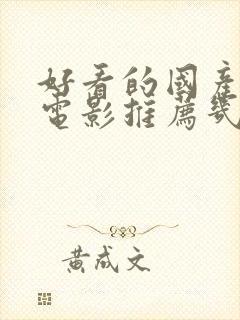 好看的國產
電影推薦幾
黃成文